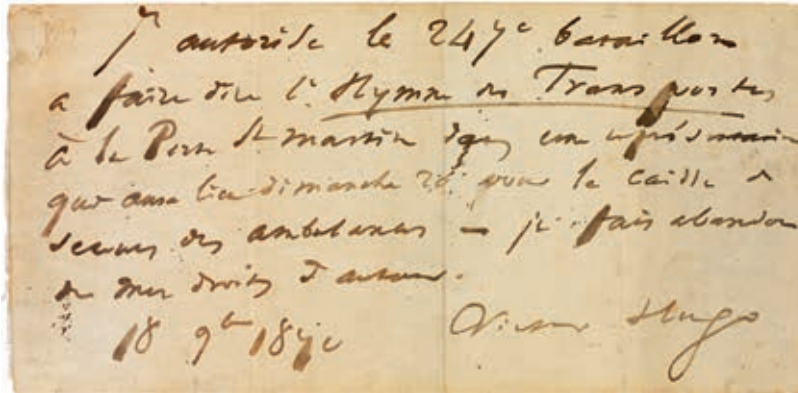 J'autorise le 247e bataillon
a faire dire l'Hymne des Transportés
à la Porte St Martin dans une représentation
qui aura lieu dimanche 20 pour la caisse de
secours des ambulances — je fais abandon
de mes droits d'auteur.
18 9bre 1870 Victor Hugo